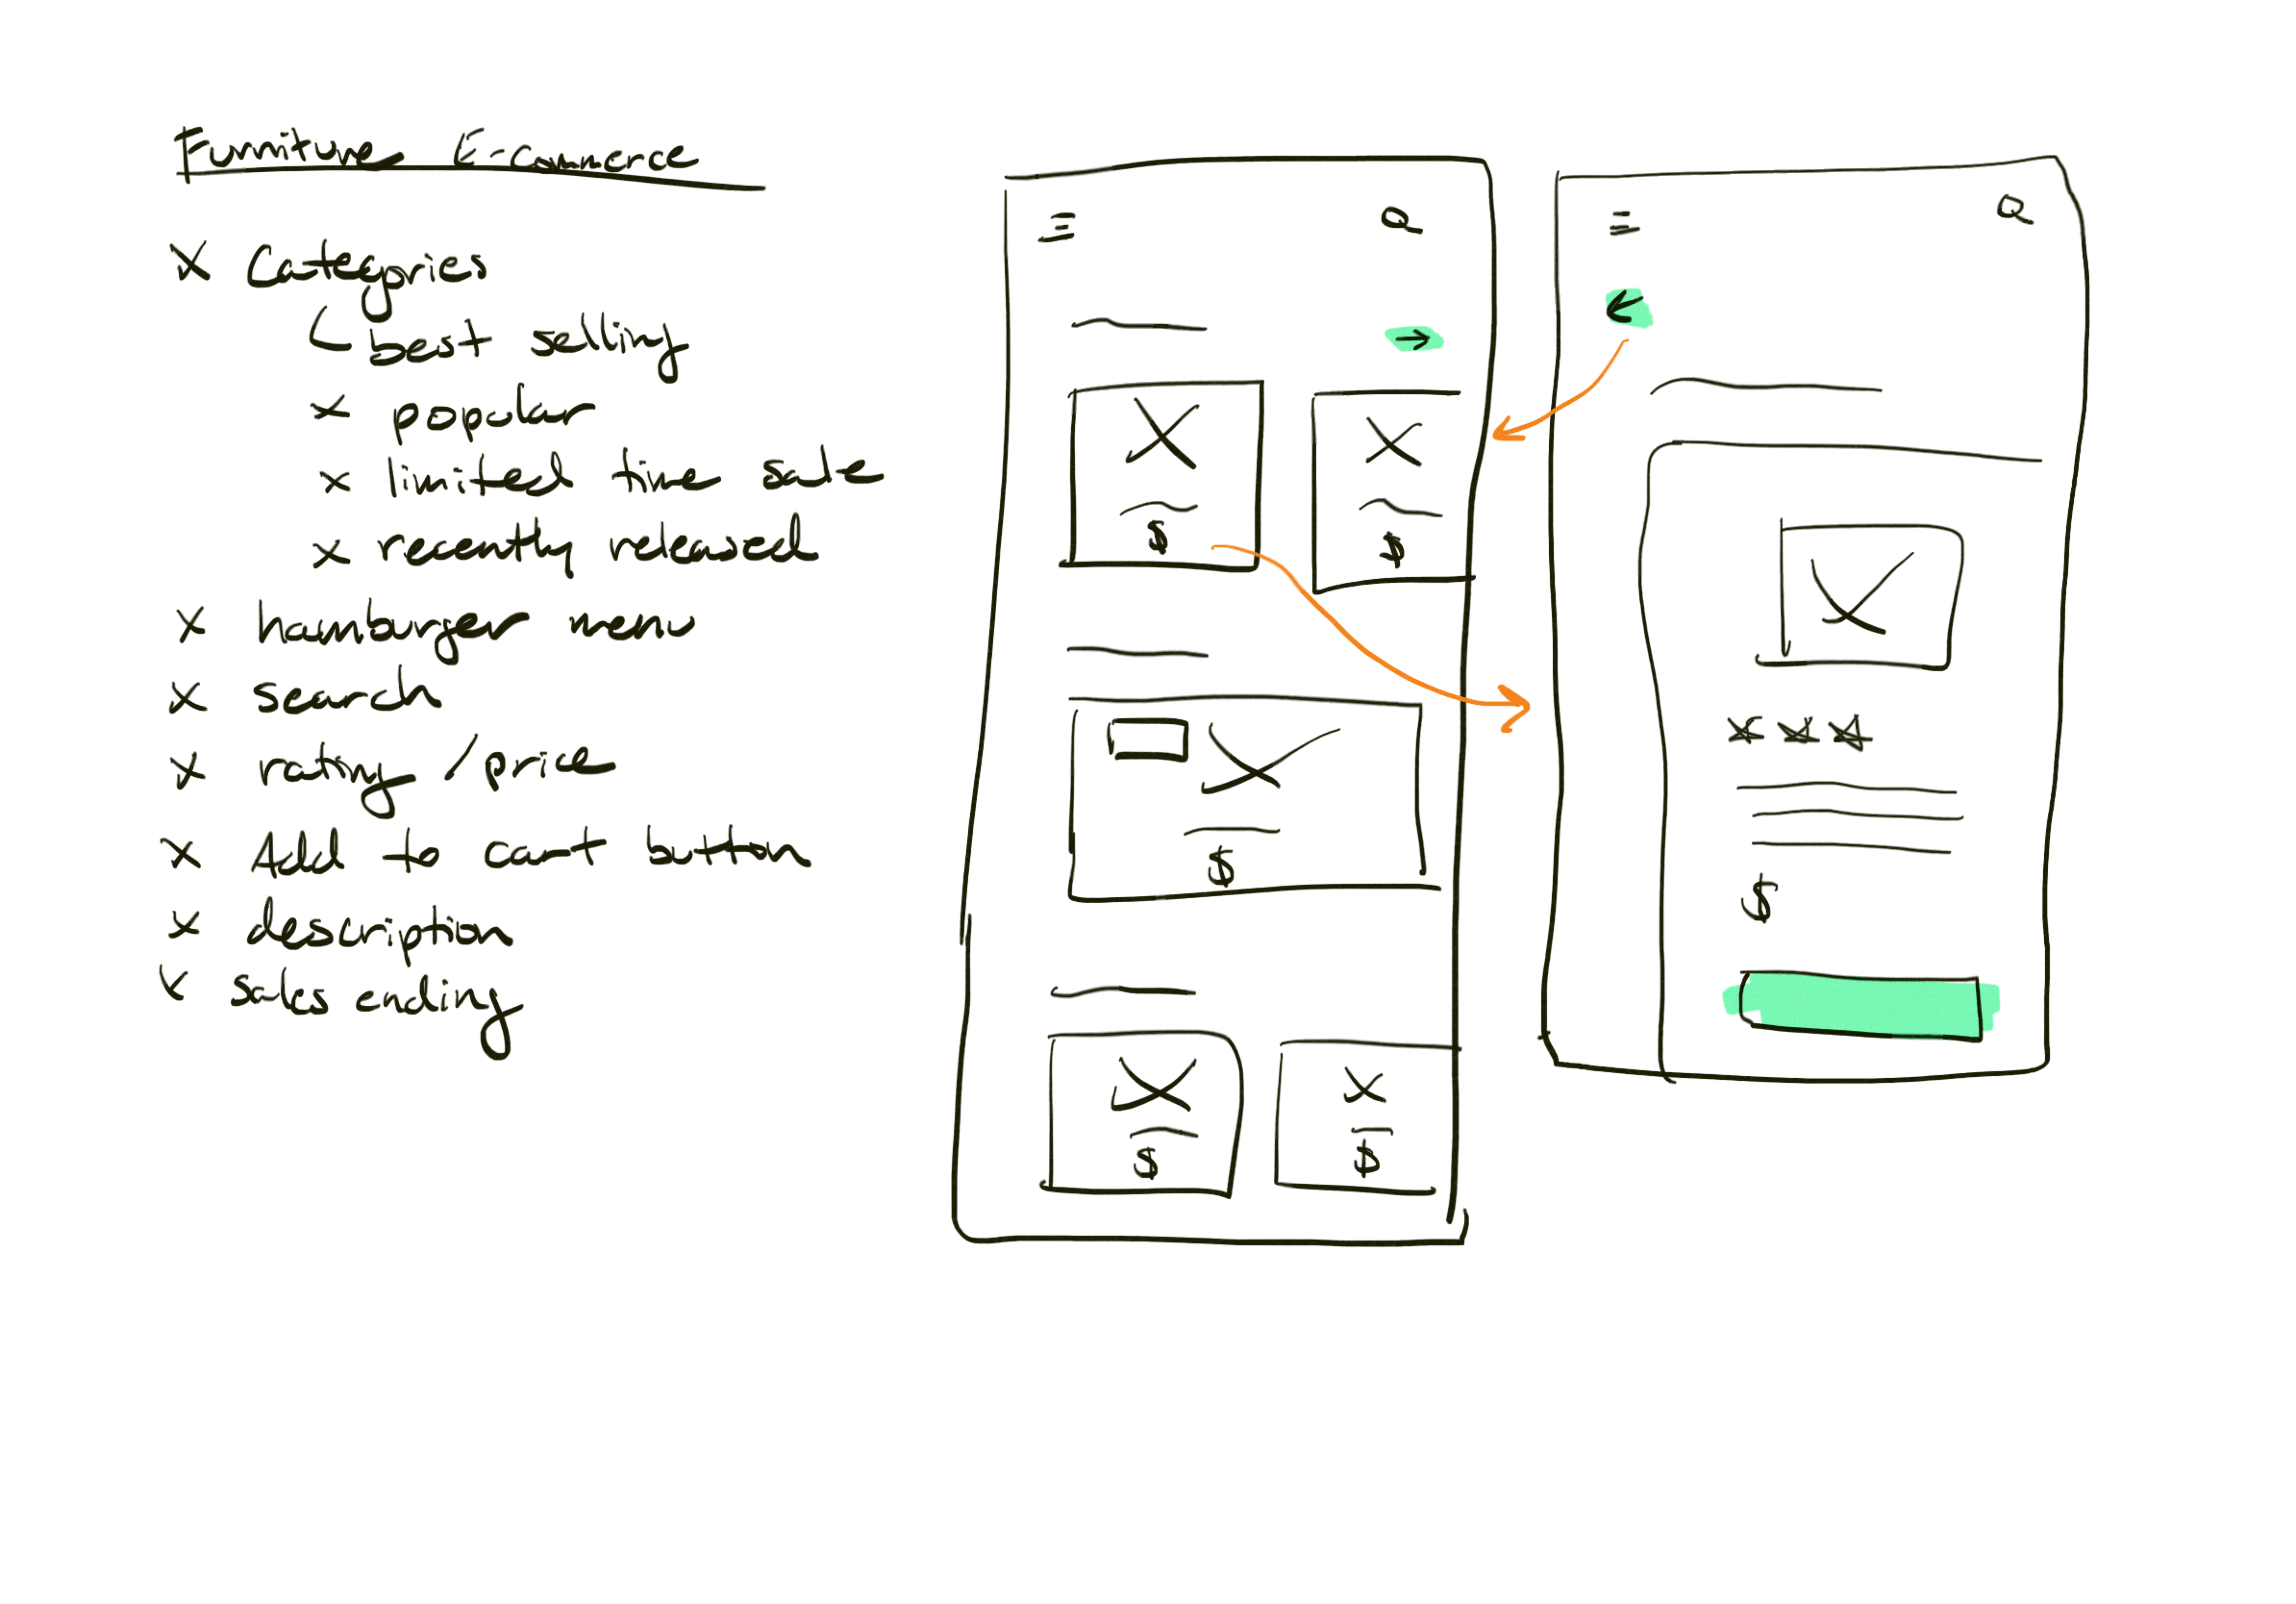 Furniture E-commerce
x Categories
best selling
x popular
x limited time sale
x recently released
x hamburger menu
x search
x rating / price
x Add to cart button
x description
x sales ending
$ $
$
$ $
$